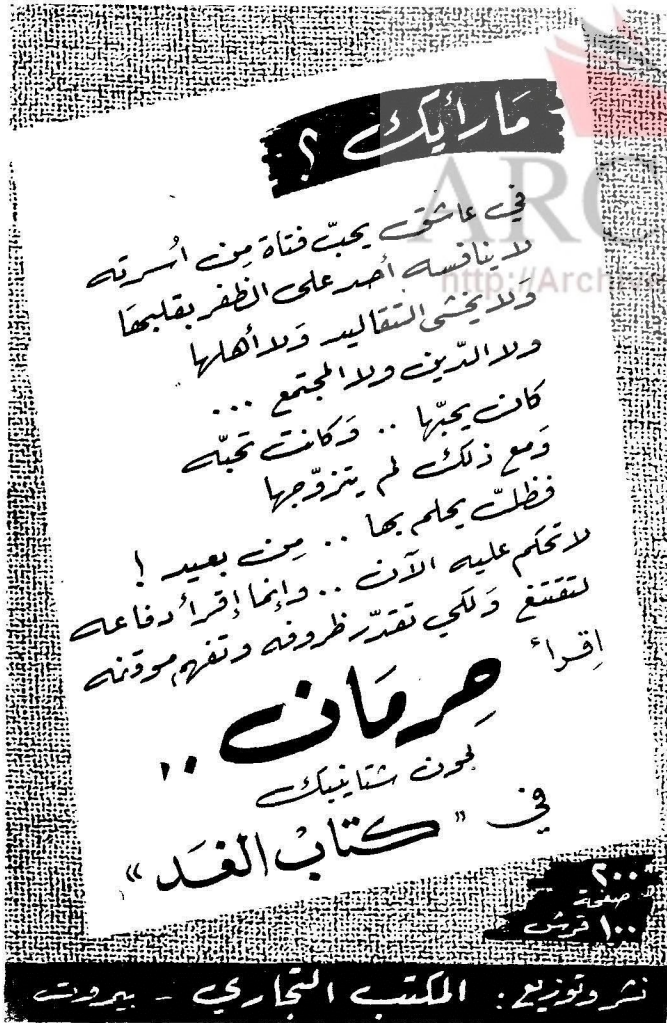 ما رأيك ؟
في عاشق يحبّ فتاة من أسرته
لا ينافسه أحد على الظفر بقلبها
ولا يخشى التقاليد ولا أهلها
ولا الدّين ولا المجتمع ...
كان يحبّها .. وكانت تحبّه
ومع ذلك لم يتزوّجها
فظلّ يحلم بها .. من بعيد !
لا تحكم عليه الآن .. وإنما إقرأ دفاعه
لتقتنع ولكي تقدّر ظروفه وتفهم موقفه
إقرأ
حِرمَان ..
لجون شتاينبك
في "كتابُ الغَد"
٢٠٠
صفحة
١٠٠ قرش
نشر وتوزيع : المكتب التجاري - بيروت
ARC
http://Archive